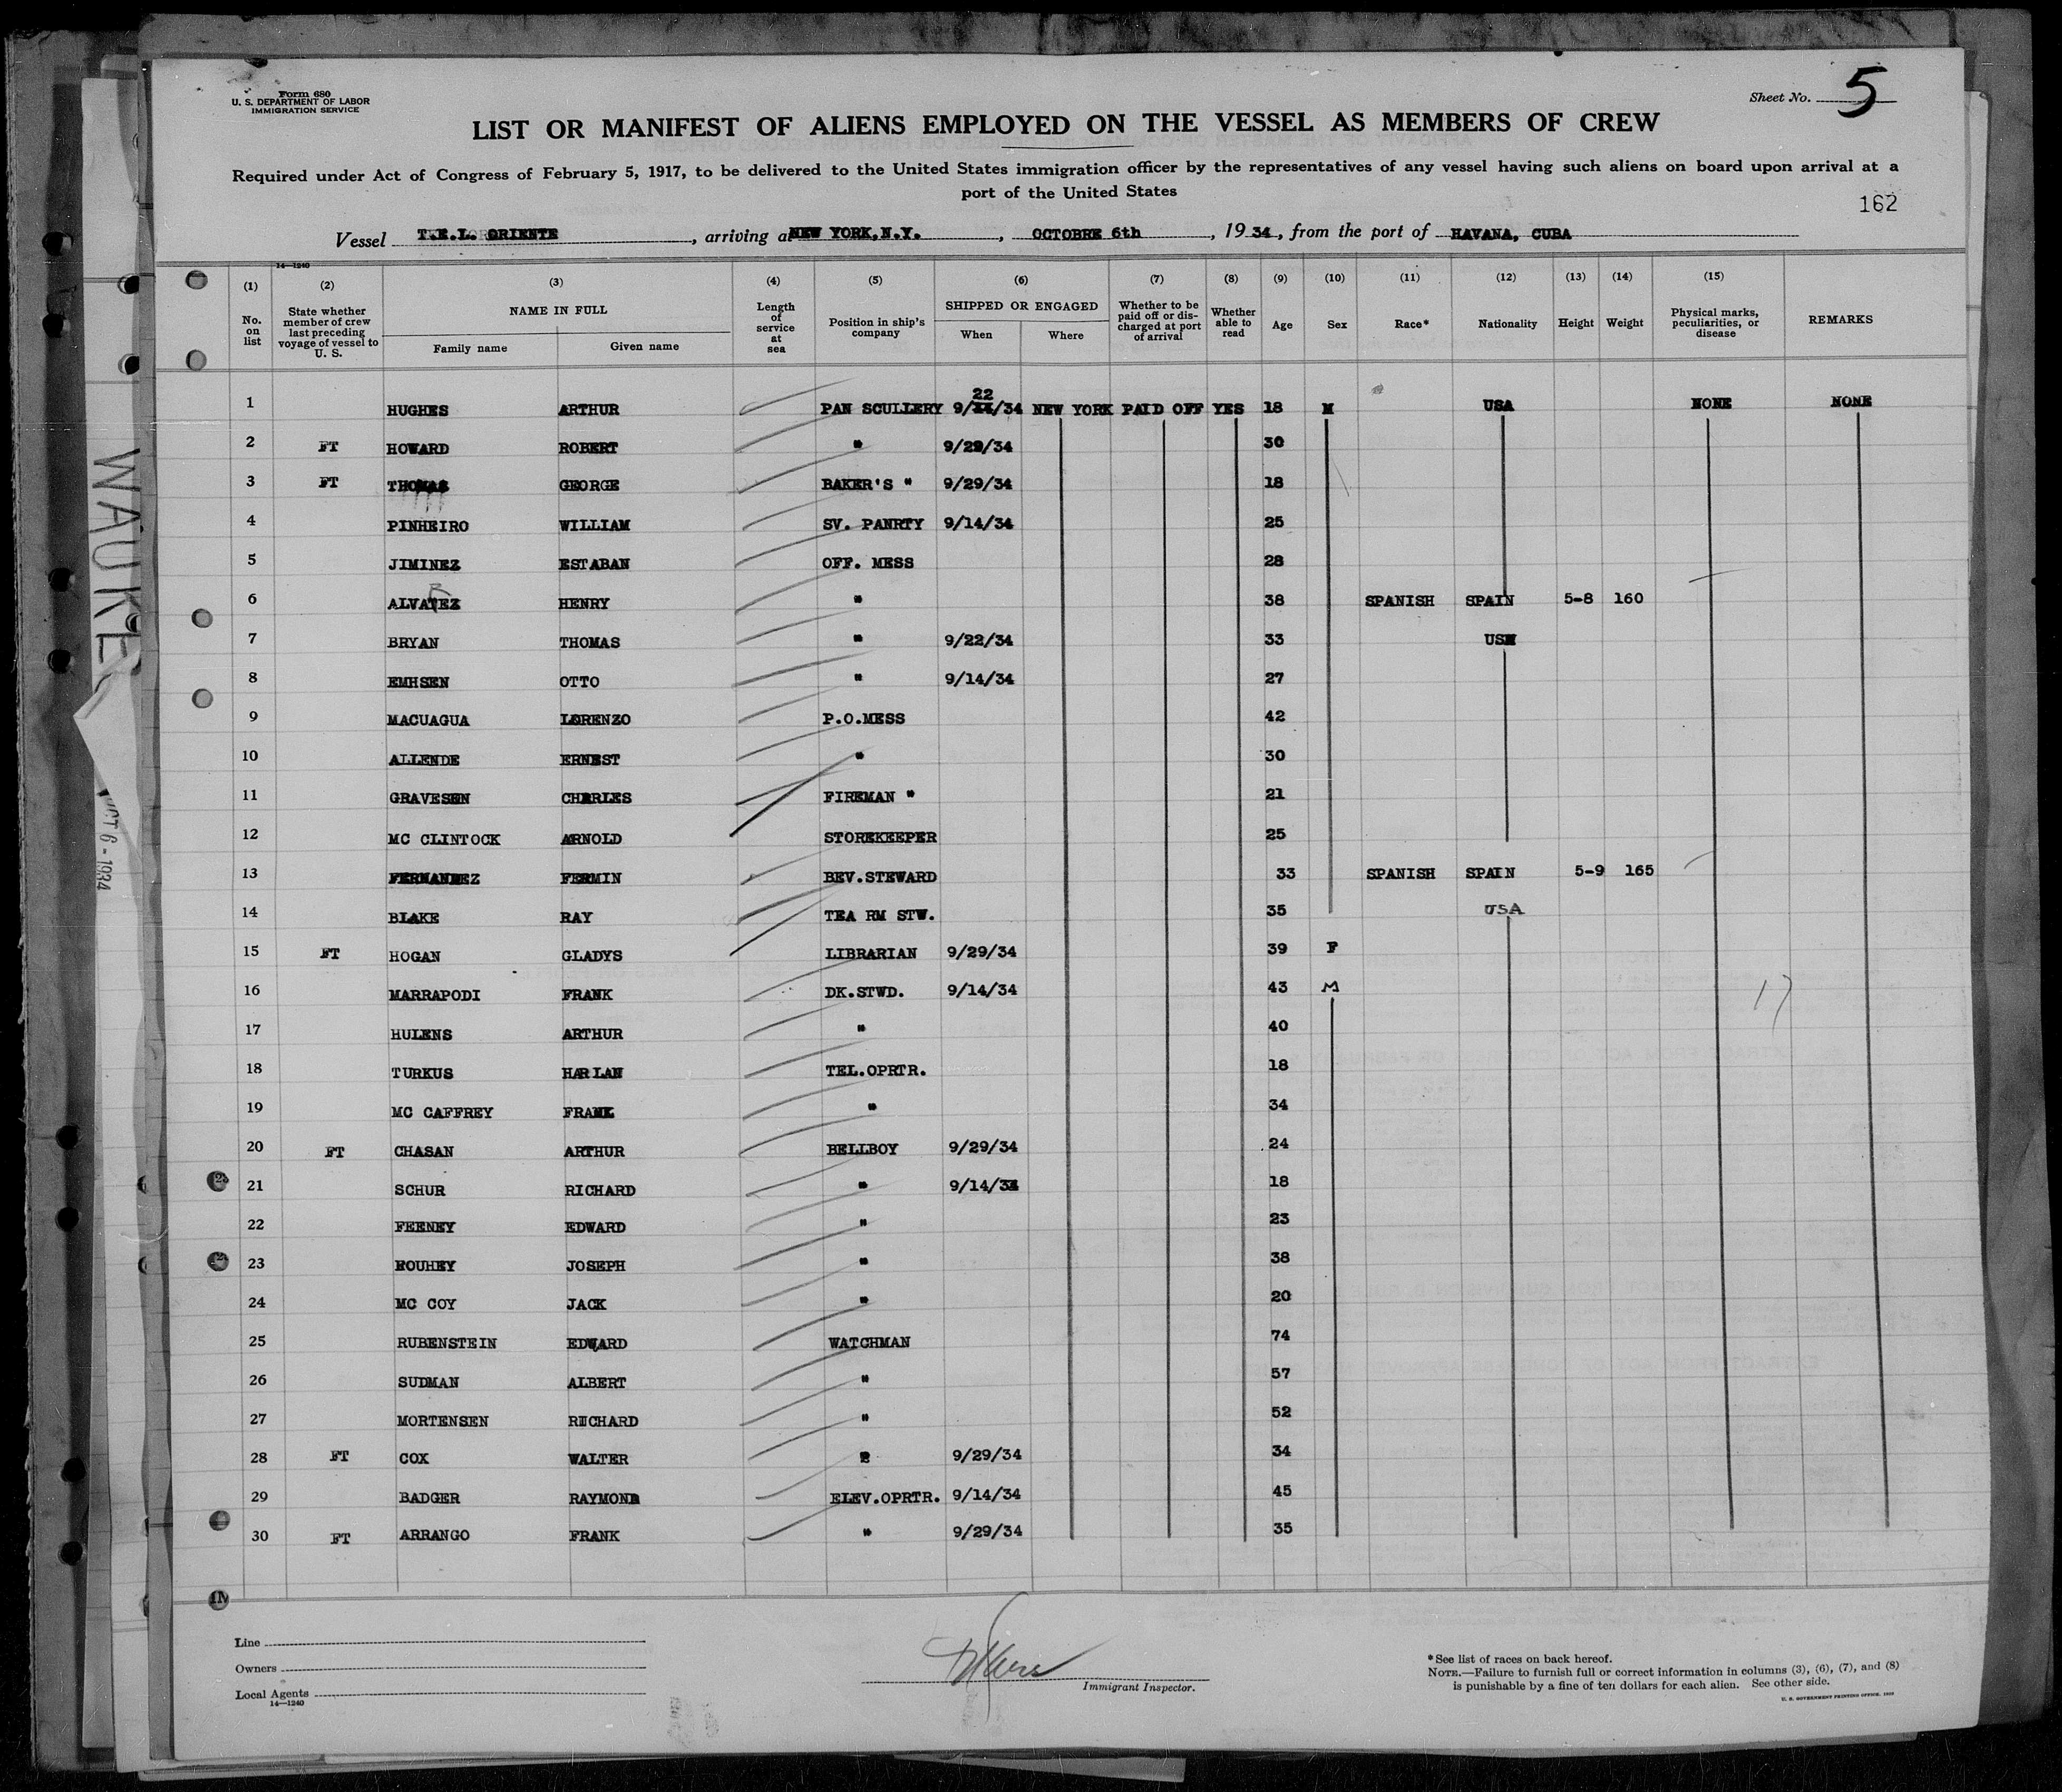 Form 680
U. S. DEPARTMENT OF LABOR
IMMIGRATION SERVICE
Sheet No. 5
LIST OR MANIFEST OF ALIENS EMPLOYED ON THE VESSEL AS MEMBERS OF CREW
Required under Act of Congress of February 5, 1917, to be delivered to the United States immigration officer by the representatives of any vessel having such aliens on board upon arrival at a
port of the United States
162
Vessel T.E.L. ORIENTE, arriving at NEW YORK,N.Y., OCTOBRE 6th, 1934, from the port of HAVANA, CUBA
14—1240
(1) No. on list (2) State whether member of crew last preceding voyage of vessel to U. S. (3) NAME IN FULL Family name Given name (4) Length of service at sea (5) Position in ship's company (6) SHIPPED OR ENGAGED When Where (7) Whether to be paid off or discharged at port of arrival (8) Whether able to read (9) Age (10) Sex (11) Race* (12) Nationality (13) Height (14) Weight (15) Physical marks, peculiarities, or disease REMARKS
1 HUGHES ARTHUR PAN SCULLERY 9/22/34 NEW YORK PAID OFF YES 18 M USA NONE NONE
2 FT HOWARD ROBERT " 9/29/34 30
3 FT THOMAS GEORGE BAKER'S " 9/29/34 18
4 PINHEIRO WILLIAM SV. PANRTY 9/14/34 25
5 JIMINEZ ESTABAN OFF. MESS 28
6 ALVAREZ HENRY " 38 SPANISH SPAIN 5-8 160
7 BRYAN THOMAS " 9/22/34 33 USA
8 EMHSEN OTTO " 9/14/34 27
9 MACUAGUA LORENZO P.O.MESS 42
10 ALLENDE ERNEST " 30
11 GRAVESEN CHARLES FIREMAN " 21
12 MC CLINTOCK ARNOLD STOREKEEPER 25
13 FERNANDEZ FERMIN BEV.STEWARD 33 SPANISH SPAIN 5-9 165
14 BLAKE RAY TEA RM STW. 35 USA
15 FT HOGAN GLADYS LIBRARIAN 9/29/34 39 F
16 MARRAPODI FRANK DK.STWD. 9/14/34 43 M
17 HULENS ARTHUR " 40
18 TURKUS HARLAN TEL.OPRTR. 18
19 MC CAFFREY FRANK " 34
20 FT CHASAN ARTHUR BELLBOY 9/29/34 24
21 SCHUR RICHARD " 9/14/34 18
22 FEENEY EDWARD " 23
23 ROUHEY JOSEPH " 38
24 MC COY JACK " 20
25 RUBENSTEIN EDWARD WATCHMAN 74
26 SUDMAN ALBERT " 57
27 MORTENSEN RICHARD " 52
28 FT COX WALTER " 9/29/34 34
29 BADGER RAYMOND ELEV.OPRTR. 9/14/34 45
30 FT ARRANGO FRANK " 9/29/34 35
17
Line
Owners
Local Agents
14—1240
Immigrant Inspector.
*See list of races on back hereof.
NOTE.—Failure to furnish full or correct information in columns (3), (6), (7), and (8)
is punishable by a fine of ten dollars for each alien. See other side.
U. S. GOVERNMENT PRINTING OFFICE
WAUKE
OCT 6 - 1934